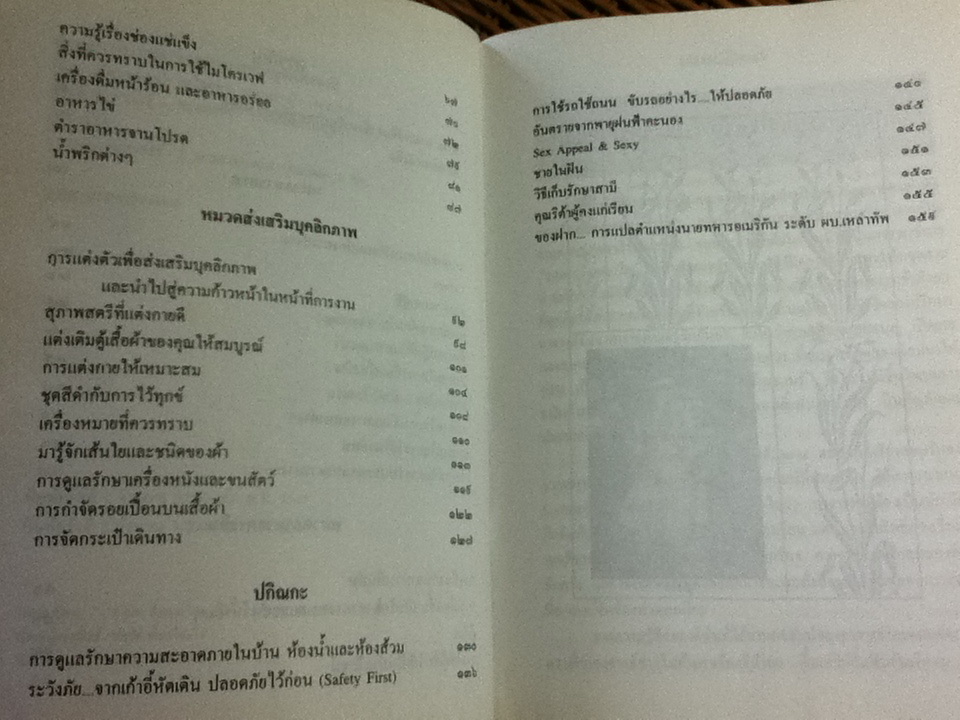 ความรู้เรื่องช่องแช่แข็ง ๖๗
สิ่งที่ควรทราบในการใช้ไมโครเวฟ ๗๐
เครื่องดื่มหน้าร้อน และอาหารอร่อย ๗๒
อาหารไข่ ๗๙
ตำราอาหารจานโปรด ๘๑
น้ำพริกต่างๆ ๘๗
หมวดส่งเสริมบุคลิกภาพ
การแต่งตัวเพื่อส่งเสริมบุคลิกภาพ
และนำไปสู่ความก้าวหน้าในหน้าที่การงาน ๙๒
สุภาพสตรีที่แต่งกายดี ๙๘
แต่งเติมตู้เสื้อผ้าของคุณให้สมบูรณ์ ๑๐๑
การแต่งกายให้เหมาะสม ๑๐๔
ชุดสีดำกับการไว้ทุกข์ ๑๐๘
เครื่องหมายที่ควรทราบ ๑๑๐
มารู้จักเส้นใยและชนิดของผ้า ๑๑๓
การดูแลรักษาเครื่องหนังและขนสัตว์ ๑๑๙
การกำจัดรอยเปื้อนบนเสื้อผ้า ๑๒๒
การจัดกระเป๋าเดินทาง ๑๒๗
ปกิณกะ
การดูแลรักษาความสะอาดภายในบ้าน ห้องน้ำและห้องส้วม ๑๓๐
ระวังภัย....จากเก้าอี้หัดเดิน ปลอดภัยไว้ก่อน (Safety First) ๑๓๖
การใช้รถใช้ถนน ขับรถอย่างไร....ให้ปลอดภัย ๑๔๐
อันตรายจากพายุฝนฟ้าคะนอง ๑๔๕
Sex Appeal & Sexy ๑๔๗
ชายในฝัน ๑๕๑
วิธีเก็บรักษาสามี ๑๕๓
คุณริต้าผู้คงแก่เรียน ๑๕๕
ของฝาก... การแปลตำแหน่งนายทหารอเมริกัน ระดับ ผบ.เหล่าทัพ ๑๕๙